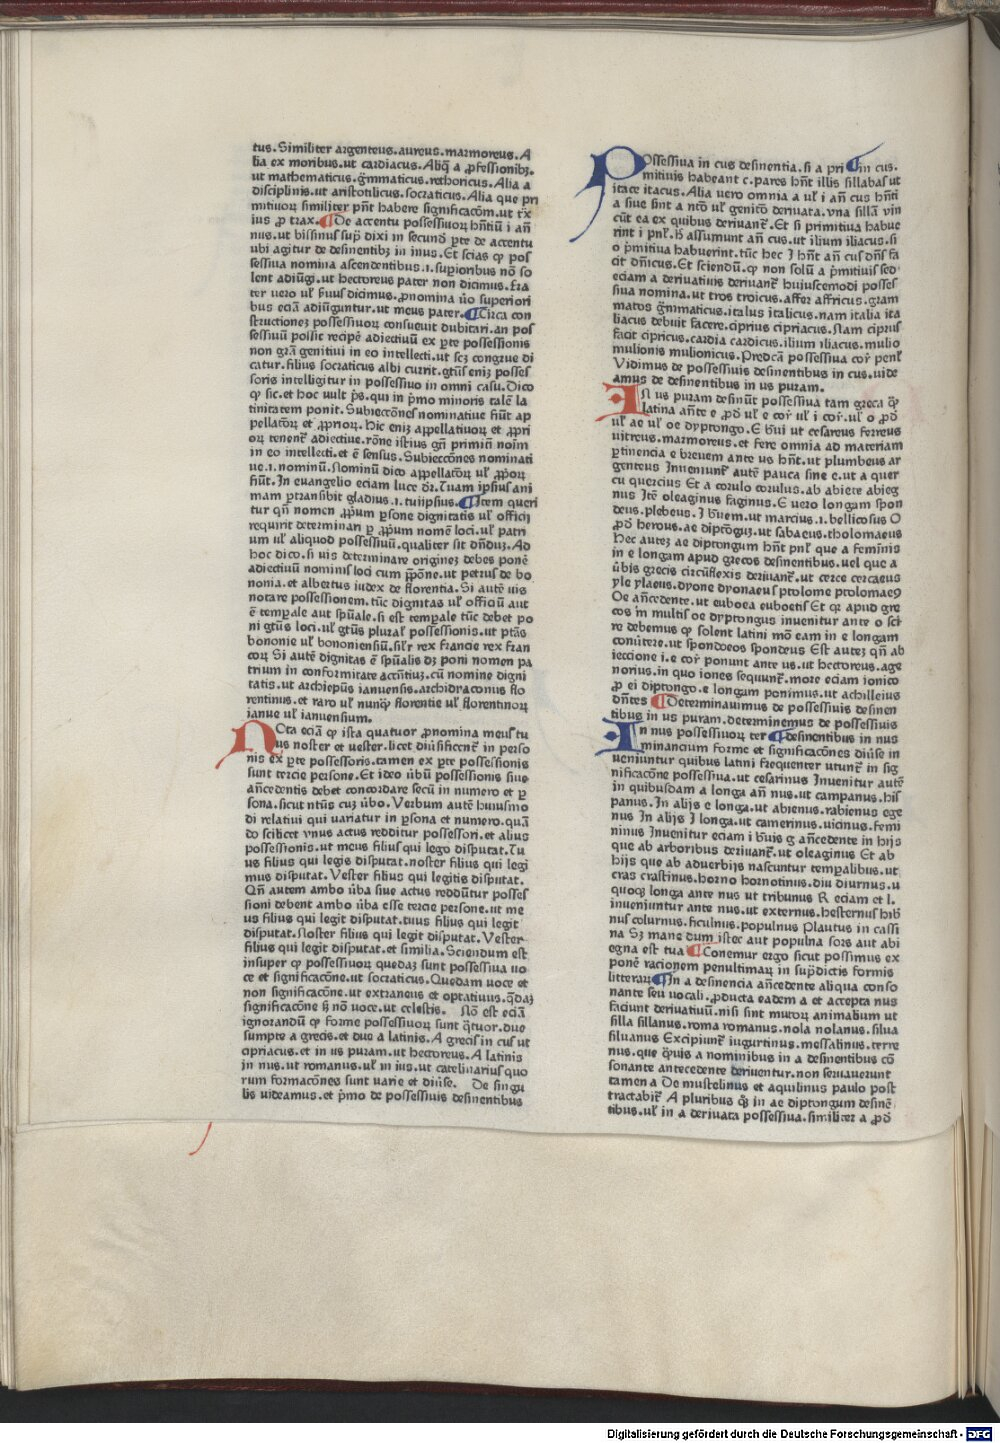 tus. Similiter argenteus. aureus. marmoreus. A
lia ex moribus. ut cardiacus. Aliq̄ a ꝓfessionibꝫ.
ut mathematicus. gͫmaticus. rethoricus. Alia a
disciplinis. ut aristotilicus. socraticus. Alia que pri
mitiuoꝝ similiter pn̄t habere significac̄om. ut tͬx
ius ꝓ trax. De accentu possessiuoꝝ hn̄tiū i an̄
nus. ut bissinus sup̄ dixi in secundo ꝑte de accentu
ubi agitur de desinentibꝫ in inus. Et scias ꝙ pos
sessiua nomina ascendentibus .i. supioribus nō so
lent adiūgi. ut hectoreus pater non dicimus. fra
ter uero uł ƀuus dicimus. ꝓnomina ūo superiori
bus eciā adiūguntur. ut meus pater. Circa con
structionez possessiuoꝝ consueuit dubitari. an pos
sessiuū possit recipē adiectiuū ex ꝑte possessionis
non grā genitiui in eo intellecti. ut scꝫ congrue di
catur. filius socraticus albi currit. gtūs enim posses
soris intelligitur in possessiuo in omni casu. Dico
ꝙ sic. et hoc uult p̄s. qui in pͥmo minoris talē la
tinitatem ponit. Subiecc̄ōnes nominatiue fiūt ap
pellatoꝝ et ꝓprioꝝ. hic enim appellatiuoꝝ et ꝓpri
oꝝ tenent᷑ adiectiue. rōne istius gn̄ primin̄ noīm
in eo intellecti. et ē sensus. Subiecc̄ones nominati
ue .i. nominū. Nominū dico appellatoꝝ uł ꝓp̄oꝝ
fiūt. In euangelio eciam luce dr̄. Tuam ipsius ani
mam ꝑtransibit gladius .i. tui ipsius. Item queri
tur qn̄ nomen ꝓp̄um ꝑsone dignitatis uł officij
requirit determinari ꝑ ꝓp̄um nomē loci. uł patri
um uł aliquod possessiuū. qualiter sit dn̄dū. Ad
hoc dico. si uis determinare originez debes ponē
adiectiuū nominis loci cum p̄pōne. ut petrus de bo
nonia. et albertus iudex de florentia. Si autē uis
notare possessionem. tūc dignitas uł officiū aut
ē temꝑale aut spūale. si est temꝑale tūc debet po
ni gtūs loci. uł gtūs plural᷑ possessionis. ut ptās
bononie uł bononiensiū. sił᷑r rex francie rex fran
coꝝ Si autē dignitas ē spūalis dꝫ poni nomen pa
trium in conformitate accn̄tiuꝫ. cū nomine digni
tatis. ut archiepūs ianuensis. archidiaconus flo
rentinus. et raro uł nunqͣ florentie uł florentinoꝝ
ianue uł ianuensium.
Nota eciā ꝙ ista quatuor ꝓnomina meus tu
us noster et uester. licet diūsificent᷑ in perso
nis ex ꝑte possessoris. tamen ex ꝑte possessionis
sunt tercie persone. Et ideo ūbū possessionis siue
an̄cedentis debet concordare secū in numero et ꝑ
sona. sicut ntūs cuꝫ ūbo. Verbum autē huiusmo
di relatiui qui uariatur in ꝑsona et numero. quā
do scilicet vnus actus redditur possessori. et alius
possessionis. ut meus filius qui lego disputat. tu
us filius qui legis disputat. noster filius qui legi
mus disputat. Vester filius qui legitis disputat.
Qn̄ autem ambo ūba siue actus reddūtur posses
sioni debent ambo ūba esse tercie persone. ut me
us filius qui legit disputat. tuus filius qui legit
disputat. Noster filius qui legit disputat. Vester
filius qui legit disputat. et similia. Sciendum est
insuper ꝙ possessiuoꝝ quedaꝫ sunt possessiua uo
ce et significac̄one. ut socraticus. Quedam uoce et
non significac̄one. ut extraneus et optatiuus. q̄daꝫ
significac̄one ꝫ nō uoce. ut celestis. Nō est eciā
ignorandū ꝙ forme possessiuoꝝ sunt qͣtuor. due
sumpte a grecis. et due a latinis. A grecis in cus ut
cipriacus. et in us puram. ut hectoreus. A latinis
in nus. ut romanus. uł in ius. ut catelinarius quo
rum formac̄ones sunt uarie et diūse. De singu
lis uideamus. et pͥmo de possessiuis desinentibus
in cus.
Possessiua in cus desinentia. si a pri
mitiuis habeant c. pares hn̄t illis sillabas ut
itace itacus. Alia uero omnia a uł i an̄ cus hn̄t
a siue sint a ntō uł genitō deriuata. vna sillā vin
cūt ea ex quibus deriuant᷑. Et si primitiua habue
rint i pnł᷑. ꝫ assumunt an̄ cus. ut ilium iliacus. si
o pͥmitiua habuerint. tūc hec i hn̄t an̄ cus dn̄s fa
cit dn̄icus. Et sciendū. ꝙ non solū a pͥmitiuis sed
eciam a deriuatiuis deriuant᷑ huiuscemodi posses
siua nomina. ut tros troicus. affer affricus. gram
matos gͫmaticus. italus italicus. nam italia ita
liacus debuit facere. ciprius cipriacus. Nam ciprus
facit cipricus. cardia cardicus. ilium iliacus. mulio
mulionis mulionicus. Predc̄a possessiua coꝝ penł᷑
Vidimus de possessiuis desinentibus in cus. uide
amus de desinentibus in us puram.
In us puram desinūt possessiua tam greca qͣ
latina an̄te e ꝓd̄ uł e coꝝ uł i coꝝ. uł o ꝓd̄
uł ae uł oe dyptongo. E ƀui ut cesareus ferreus
uitreus. marmoreus. et fere omnia ad materiam
ꝑtinencia e breuem ante us hn̄t. ut plumbeus ar
genteus Inueniunt᷑ autē pauca sine e. ut a quer
cu quercius Et a corulo corulus. ab abiete abieg
nus Itē oleaginus faginus. E uero longam spon
deus. plebeus. I ƀuem. ut marcius .i. bellicosus O
ꝓd̄ herous. ae diptōgꝫ. ut sabaeus. tholomaeus
Hec autez ae diptongum hn̄t pnł᷑ que a femīnis
in e longam apud grecos desinentibus. uel que a
ūbis grecis circūflexis deriuant᷑. ut circe circaeus
yle ylaeus. dyone dyonaeus ptolome ptolomaeꝰ
Oe an̄cedente. ut euboea euboeus Et ꝙ apud gre
cos in multis oe dyptongus inuenitur ante o sci
re debemus ꝙ solent latini mō eam in e longam
conūtere. ut spondoeos spondeus Est autez qn̄ ab
ieccione i. e coꝝ ponunt ante us. ut hectoreus. age
norius. in quo iones sequunt᷑. more eciam ionico
ꝓ ei diptongo. e longam ponimus. ut achilleius
dn̄tes Determinauimus de possessiuis desinen
tibus in us puram. determinemus de possessiuis
desinentibus in nus
In nus possessiuoꝝ ter
minancium forme et significac̄ones diūse in
ueniuntur quibus latini frequenter utunt᷑ in sig
nificac̄one possessiua. ut cesarinus Inuenitur autē
in quibusdam a longa an̄ nus. ut campanus. his
panus. In alijs e longa. ut abienus. rabienus ege
nus In alijs I longa. ut camerinus. uicinus. femi
ninus Inuenitur eciam i ƀuis g an̄cedente in hijs
que ab arboribus deriuant᷑. ut oleaginus Et ab
hijs que ab aduerbijs nascuntur tempalibus. ut
cras crastinus. horno hornotinus. diu diurnus. u
quoqꝫ longa ante nus ut tribunus R eciam et l.
inueniuntur ante nus. ut externus. hesternus hib̄
nus colurnus. ficulnus. populnus Plautus in cassi
na Sꝫ mane dum istec aut populna sors aut abi
egna est tua Conemur ergo sicut possimus ex
ponē racionem penultimaꝝ in sup̄dictis formis
litteraꝝ In a desinencia an̄cedente aliqua conso
nante seu uocali. ꝓducta eadem a et accepta nus
faciunt deriuatiuū. nisi sint mutoꝝ animalium ut
silla sillanus. roma romanus. nola nolanus. silua
siluanus Excipiunt᷑ iugurtinus. messalinus. terre
nus. que qͣuis a nominibus in a desinentibus cō
sonante antecedente deriuentur. non seruauerunt
tamen a De mustelinus et aquilinus paulo post
tractabit᷑ A pluribus qͣꝫ in ae diptongum desinē
tibus. uł in a deriuata possessiua. similiter a ꝓd̄
Digitalisierung gefördert durch die Deutsche Forschungsgemeinschaft - DFG